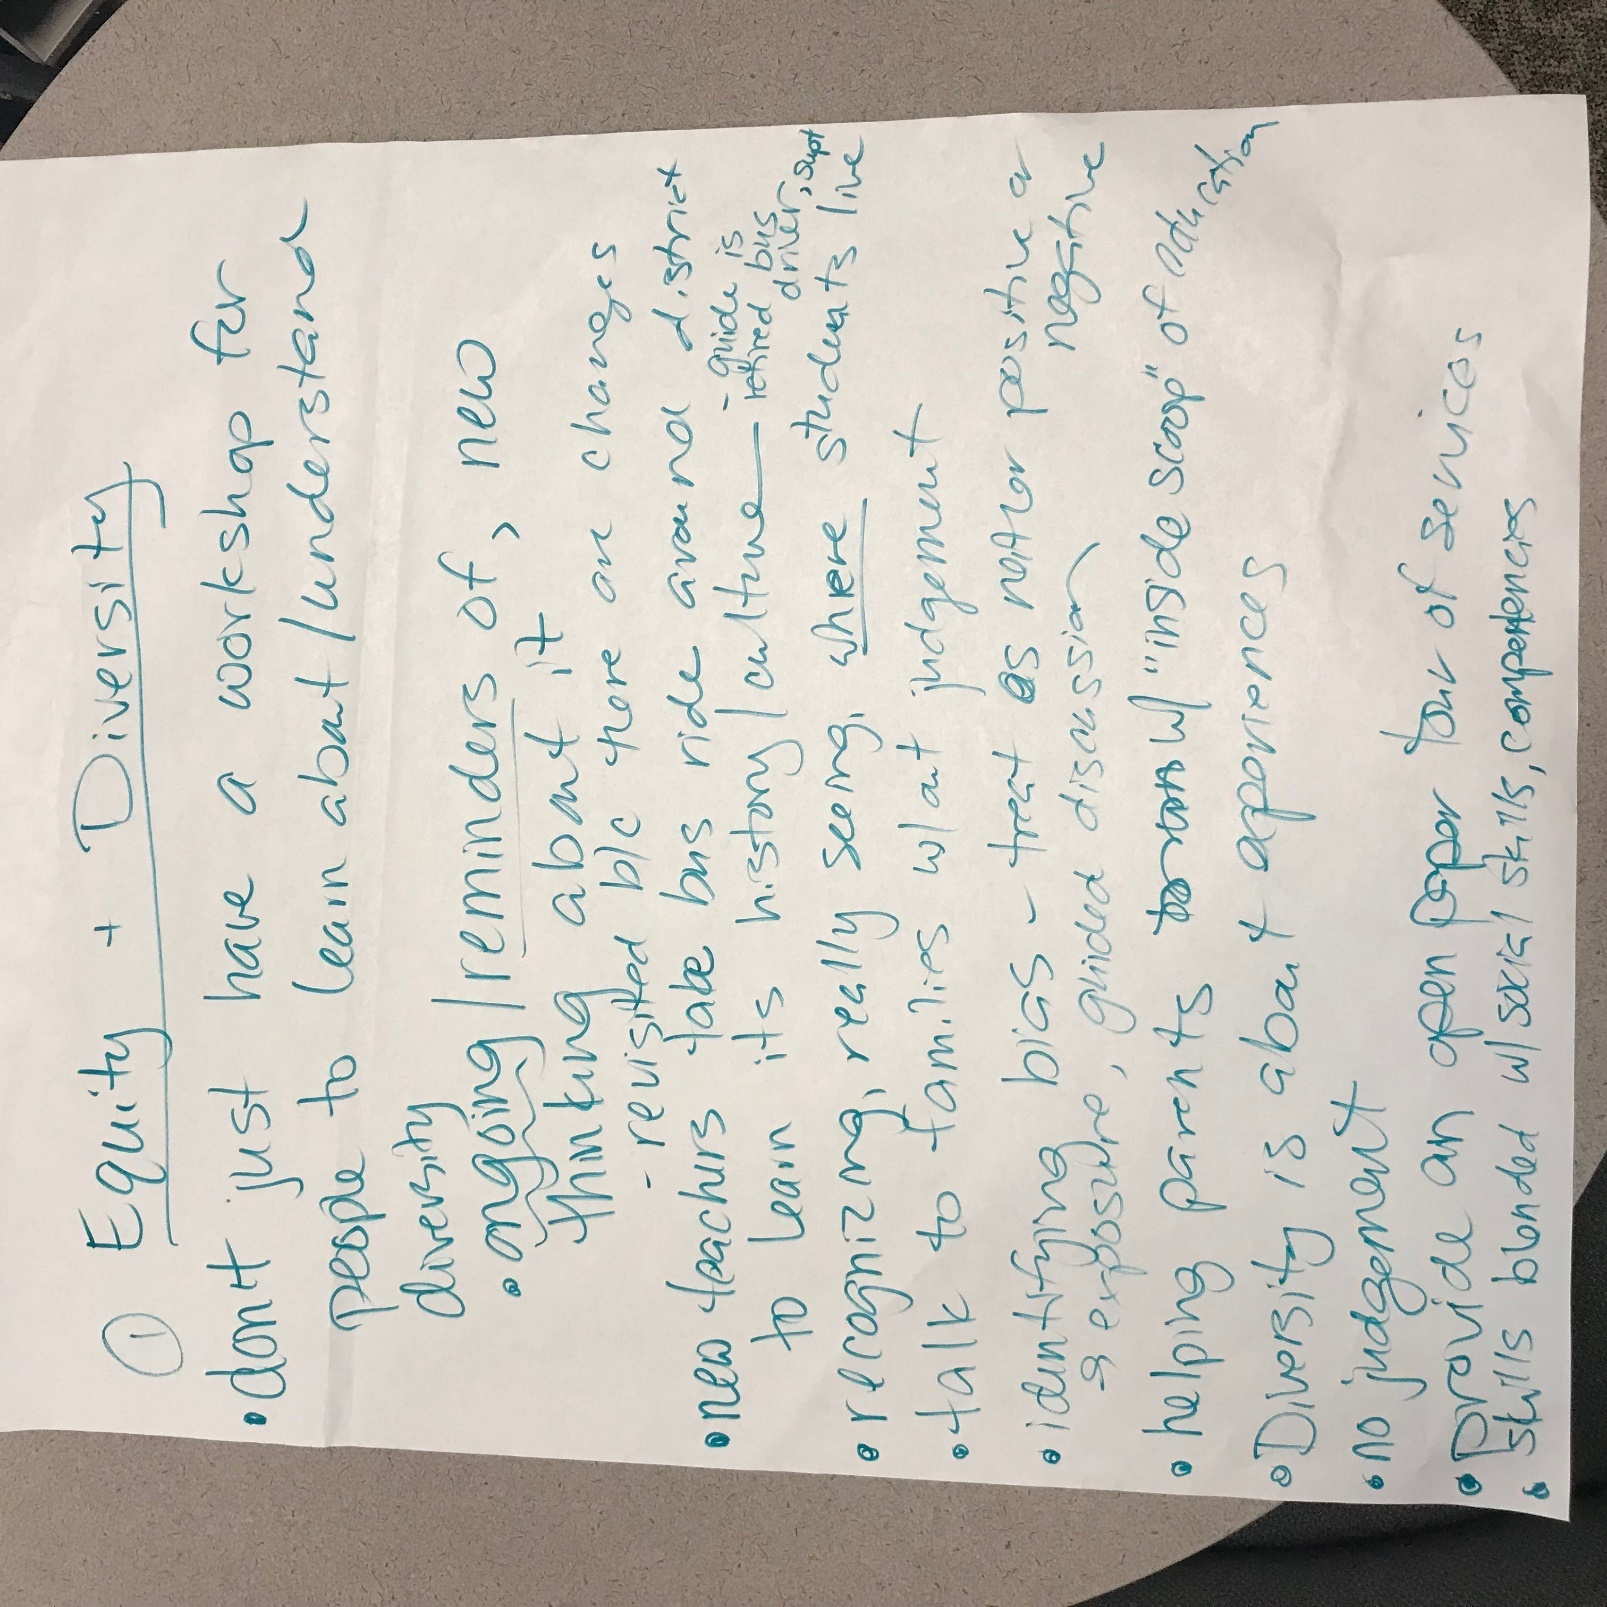 ① Equity + Diversity
• don't just have a workshop for
people to learn about/understand
diversity
• ongoing/reminders of, new
thinking about it
- revisited b/c there are changes
• new teachers take bus ride around district
to learn its history/culture — - guide is
retired bus
driver, supt
• recognizing, really seeing, where students live
• talk to families w/out judgement
• identifying bias - treat as not or positive or
negative
exposure, guided discussion
• helping parents w/ "inside scoop" of education
• Diversity is about experiences
• no judgement
• Provide an open tour of services
• skills blended w/ social skills, competencies